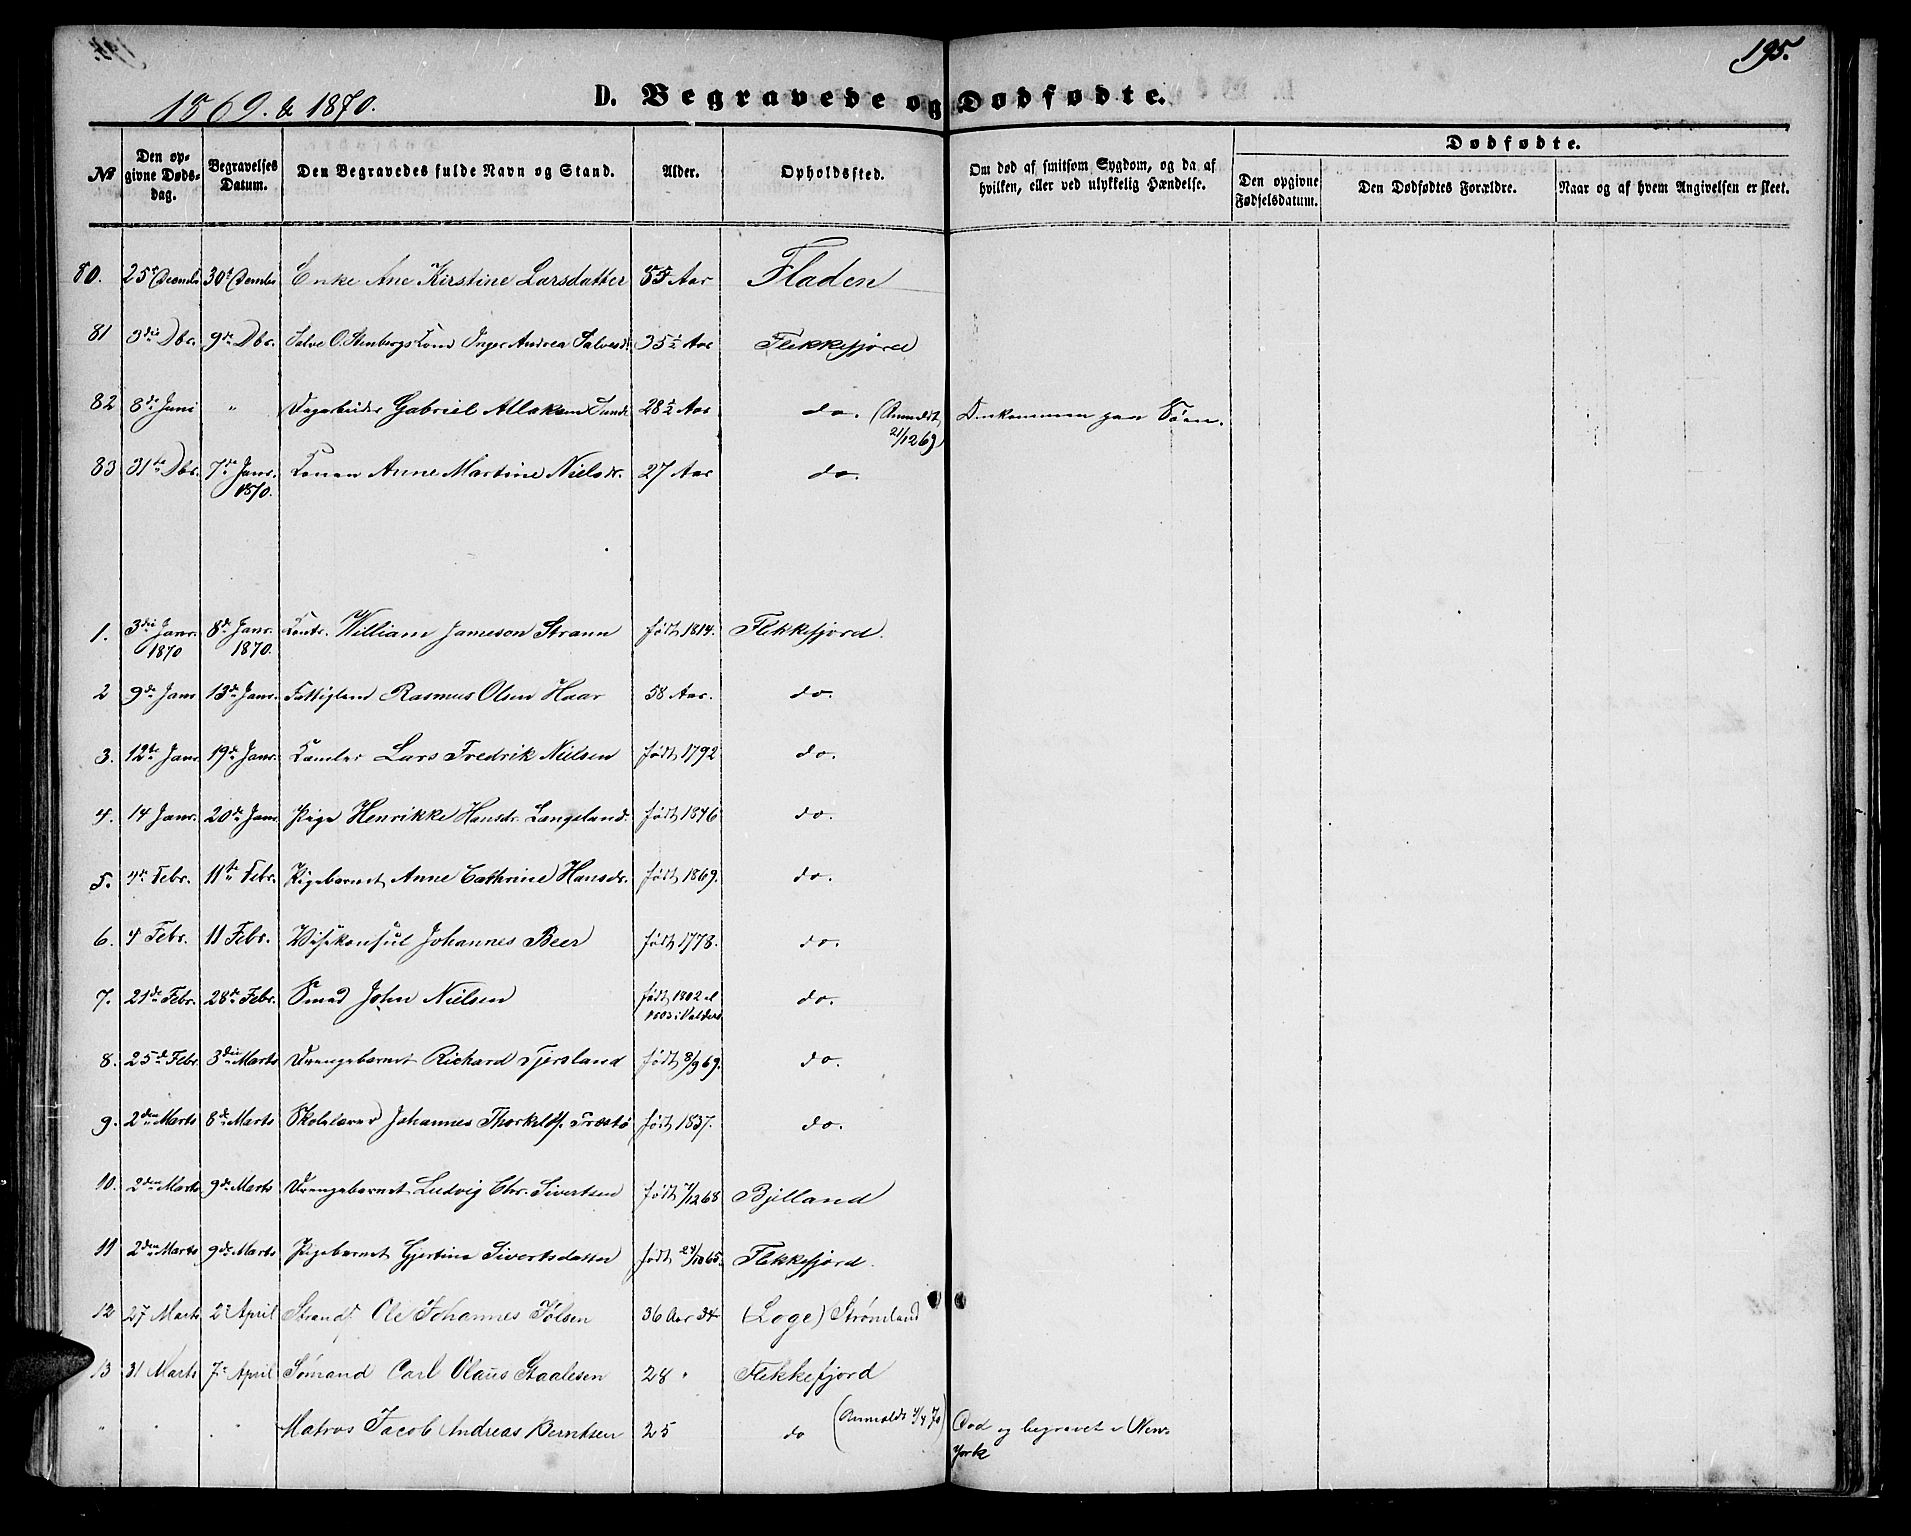 195.
1869. & 1870.
D. Begravede og Dødfødte.
Dødfødte.
№
Den opgivne Dødsdag.
Begravelses Datum.
Den Begravedes fulde Navn og Stand.
Alder.
Opholdssted.
Om død af smitsom Sygdom, og da af hvilken, eller ved ulykkelig Hændelse.
Den opgivne Fødselsdatum.
Den Dødfødtes Forældre.
Naar og af hvem Angivelsen er skeet.
80. 25de Decembr 30te Decembr Enke Ane Kirstine Larsdatter 85 Aar Fladen
81 3die Dbr. 9de Dbr. Salve O. Stenbergs Kone Inger Andrea Salvesd. 35½ Aar Flekkefjord
82 8de Juni " Dagarbeider Gabriel Allaksen 28½ Aar do. (Anmeldt 21/12 69) Omkommen paa Søen.
83 31te Dbr. 7de Janr. 1870. Konen Anne Martine Nielsdr. 27 Aar do.
1. 3die Janr. 1870 8de Janr. 1870. William Jameson Strann født 1814. Flekkefjord.
2 9de Janr 13de Janr. Fattiglem Rasmus Olsen Haar 58 Aar. do.
3. 12te Janr 19de Janr. Lars Fredrik Nielsen født 1792 do.
4. 14 Janr. 20de Janr Pige Henrikke Hansdr. Langeland. født 1846 do.
5. 4de Febr. 11te Febr. Pigebarnet Anne Cathrine Hansdr. født 1869. do.
6. 4 Febr. 11 Febr. Visekonsul Johannes Beer født 1778. do.
7. 21de Febr. 28de Febr. Smed John Nielsen født 1802 el 1803 i Valders. do.
8. 25de Febr. 3die Marts Drengebarnet Richard Tjersland født 8/9 69. do.
9. 2den Marts 8de Marts Skolelærer Johannes Thorkelds. født 1837. do.
10. 2den Marts 9de Marts Drengebarnet Ludvig Chr. Sivertsen født 7/12 68 Bjelland
11 2den Marts 9de Marts Pigebarnet Gjertine Sivertsdatter født 24/10 65. Flekkefjord.
12 27 Marts 2den April Strands. Ole Johannes Tølsen 36 Aar 34 (Loge) Strømland
13 31 Marts 7de April Sømand Carl Olaus Staalesen 28 " Flekkefjord
" " " Matros Jacob Andreas Berntsen 25 do (Anmeldt 4/4 70) Død og begravet i New-York